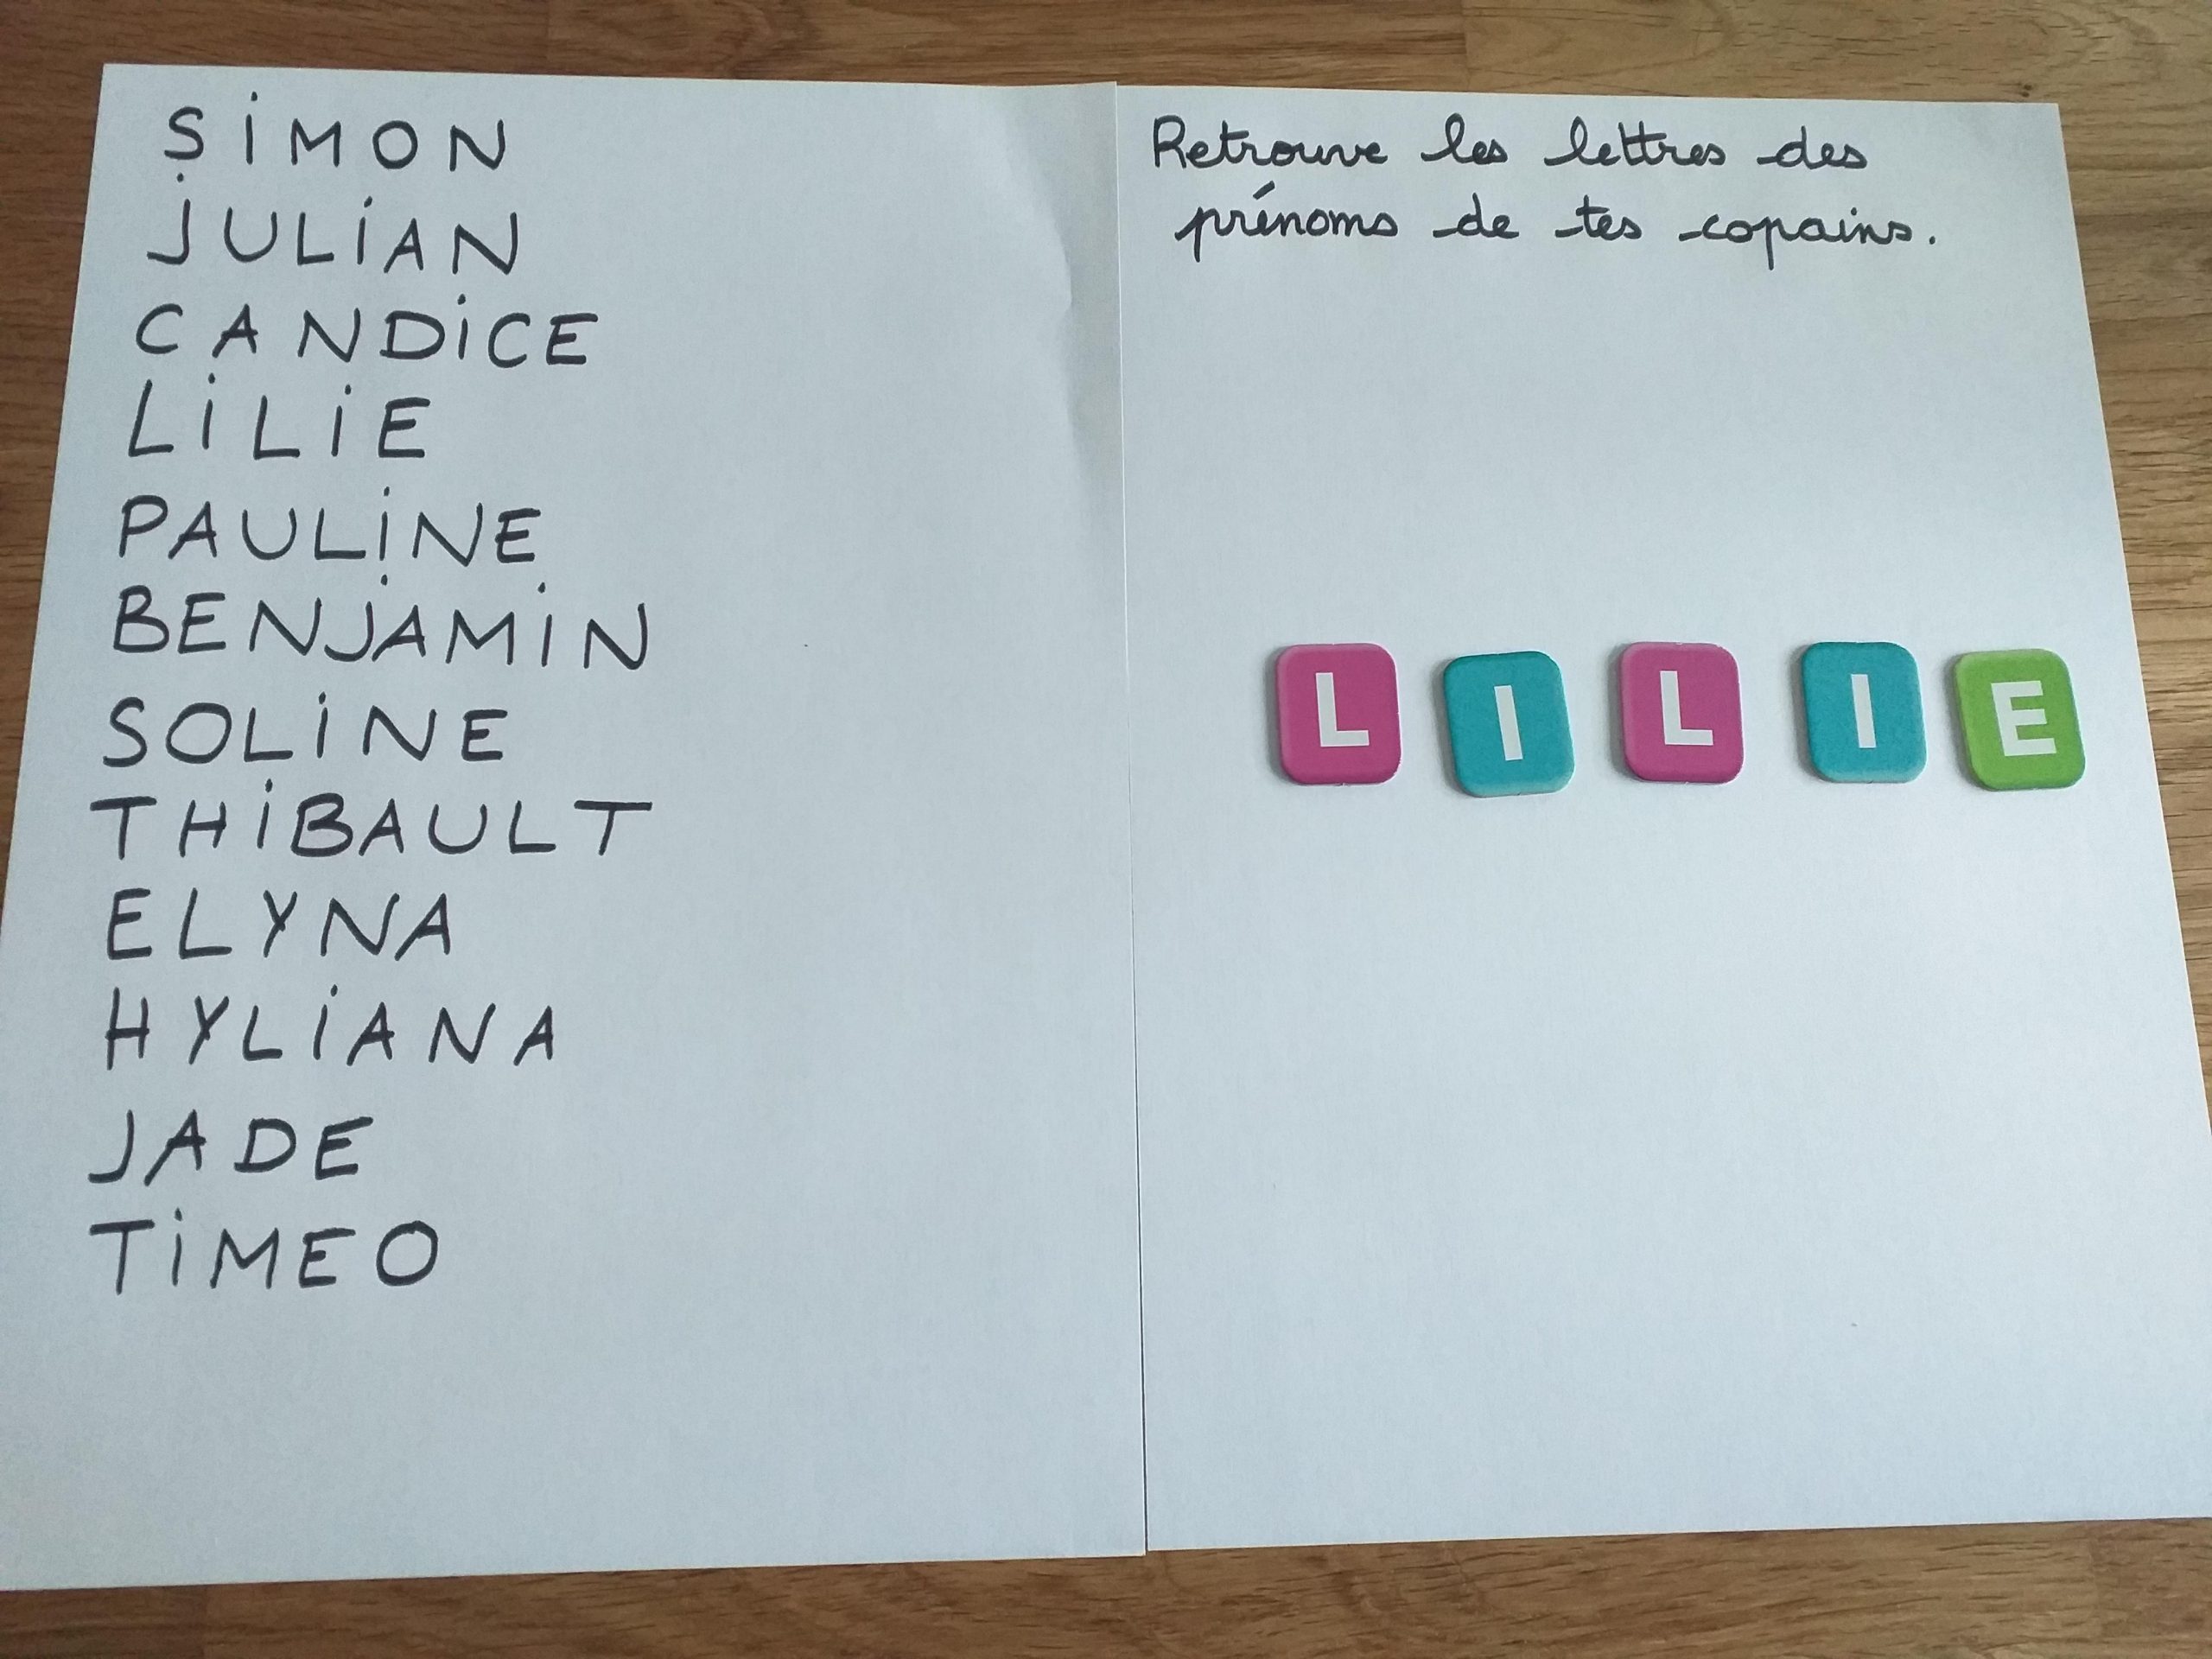 SiMON
JULiAN
CANDiCE
LiLiE
PAULiNE
BENJAMiN
SOLiNE
THiBAULT
ELYNA
HYLiANA
JADE
TiMEO
Retrouve les lettres des
prénoms de tes copains.
L I L I E